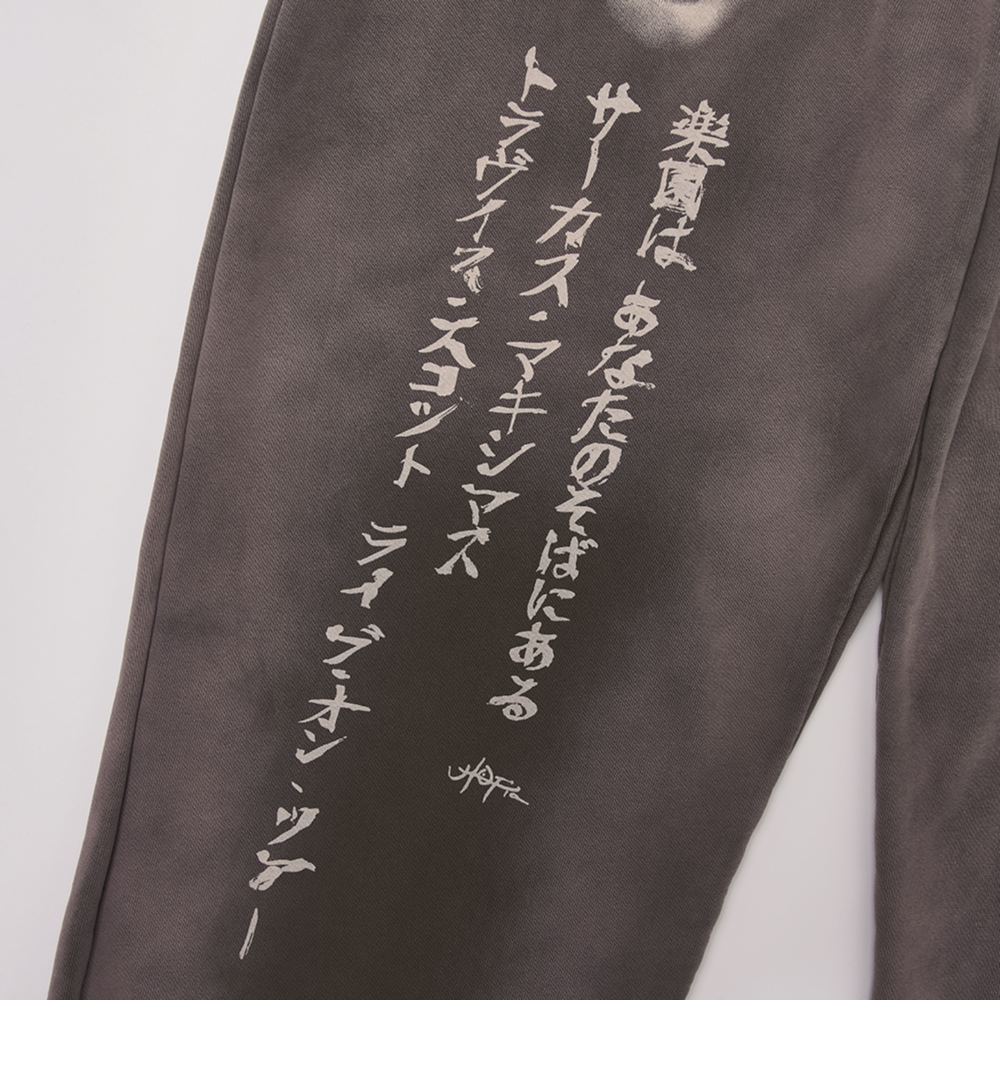 楽園は あなたのそばにある
サーカス・マキシマス
トラヴィス・スコット ライヴ・オン・ツアー